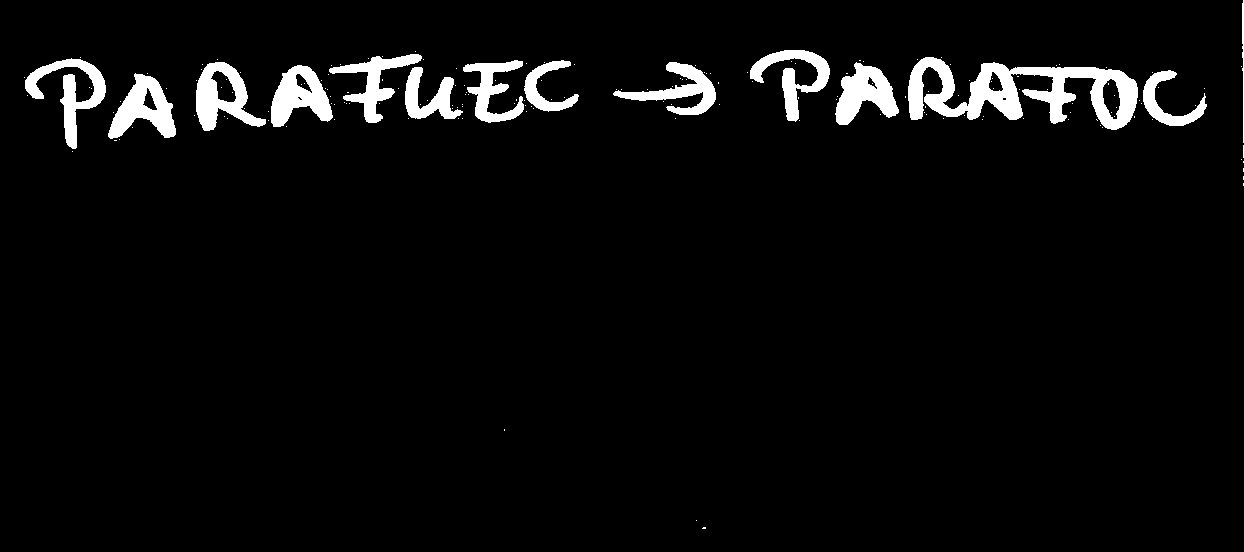 PARAFUEC → PARAFOC